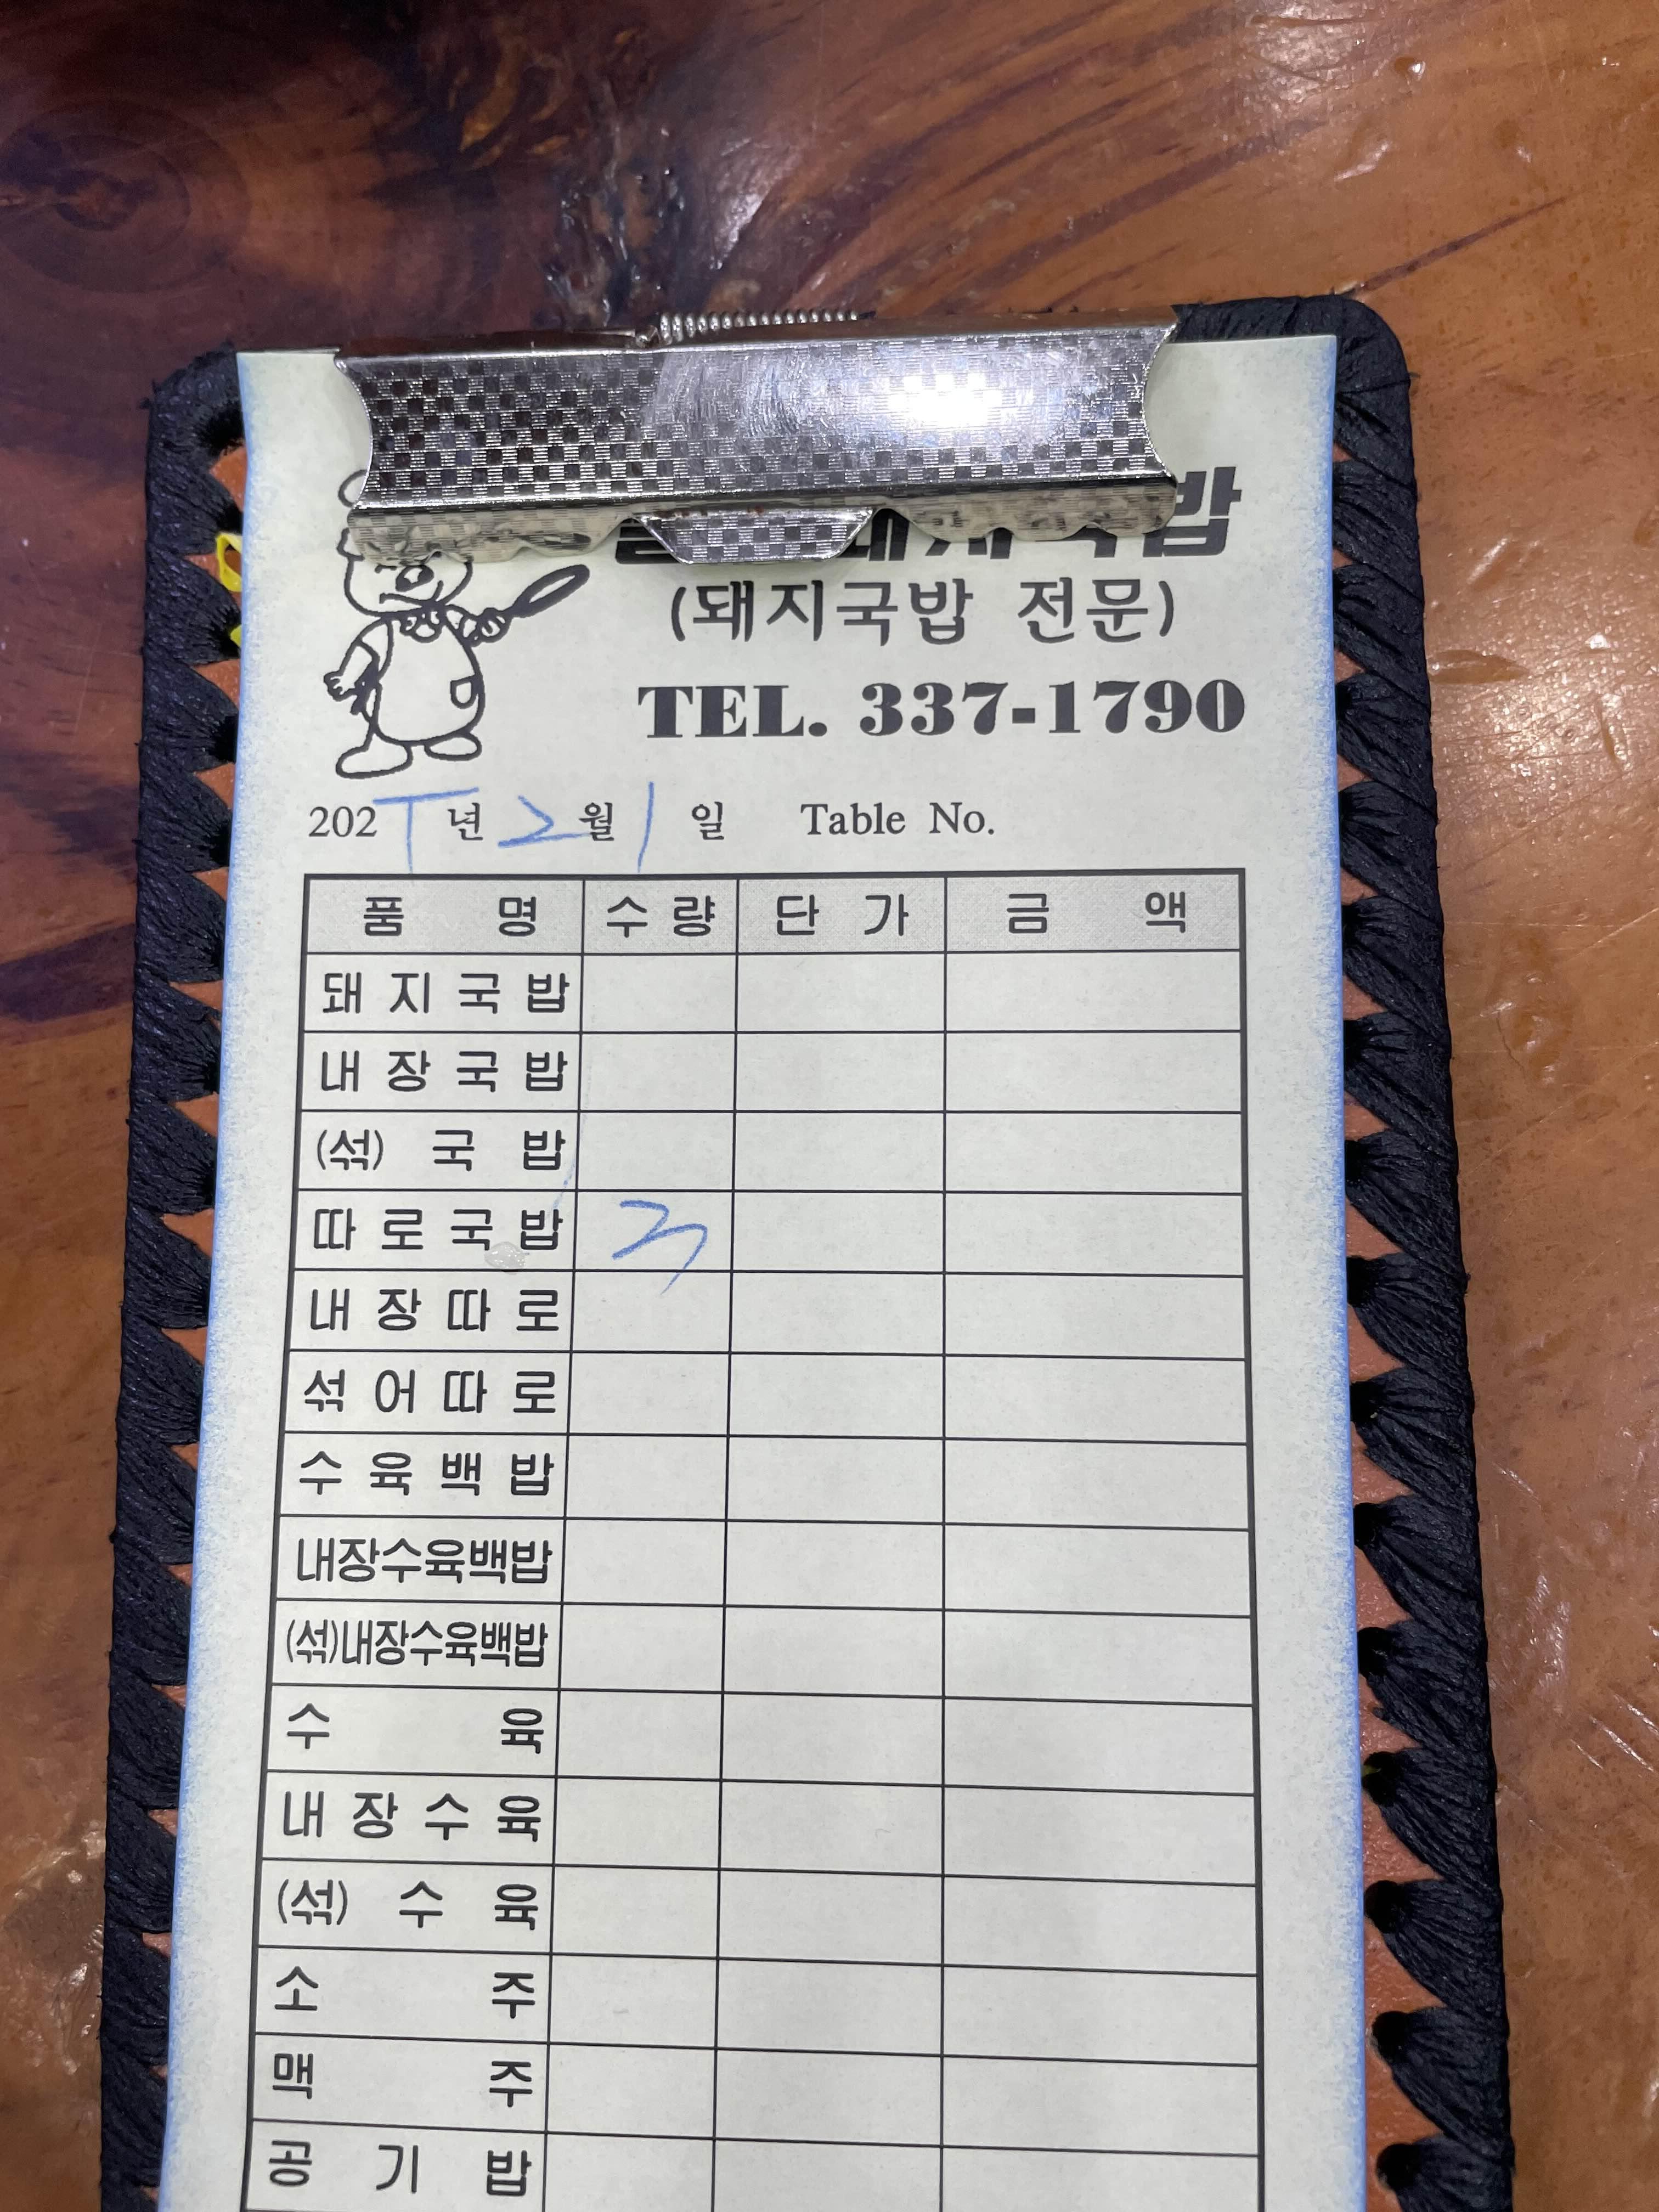 (돼지국밥 전문)
TEL. 337-1790
202 년 2월 1 일 Table No.
품 명 수 량 단 가 금 액
돼 지 국 밥
내 장 국 밥
(섞) 국 밥
따 로 국 밥
내 장 따 로
섞 어 따 로
수 육 백 밥
내장수육백밥
(섞)내장수육백밥
수 육
내 장 수 육
(섞) 수 육
소 주
맥 주
공 기 밥